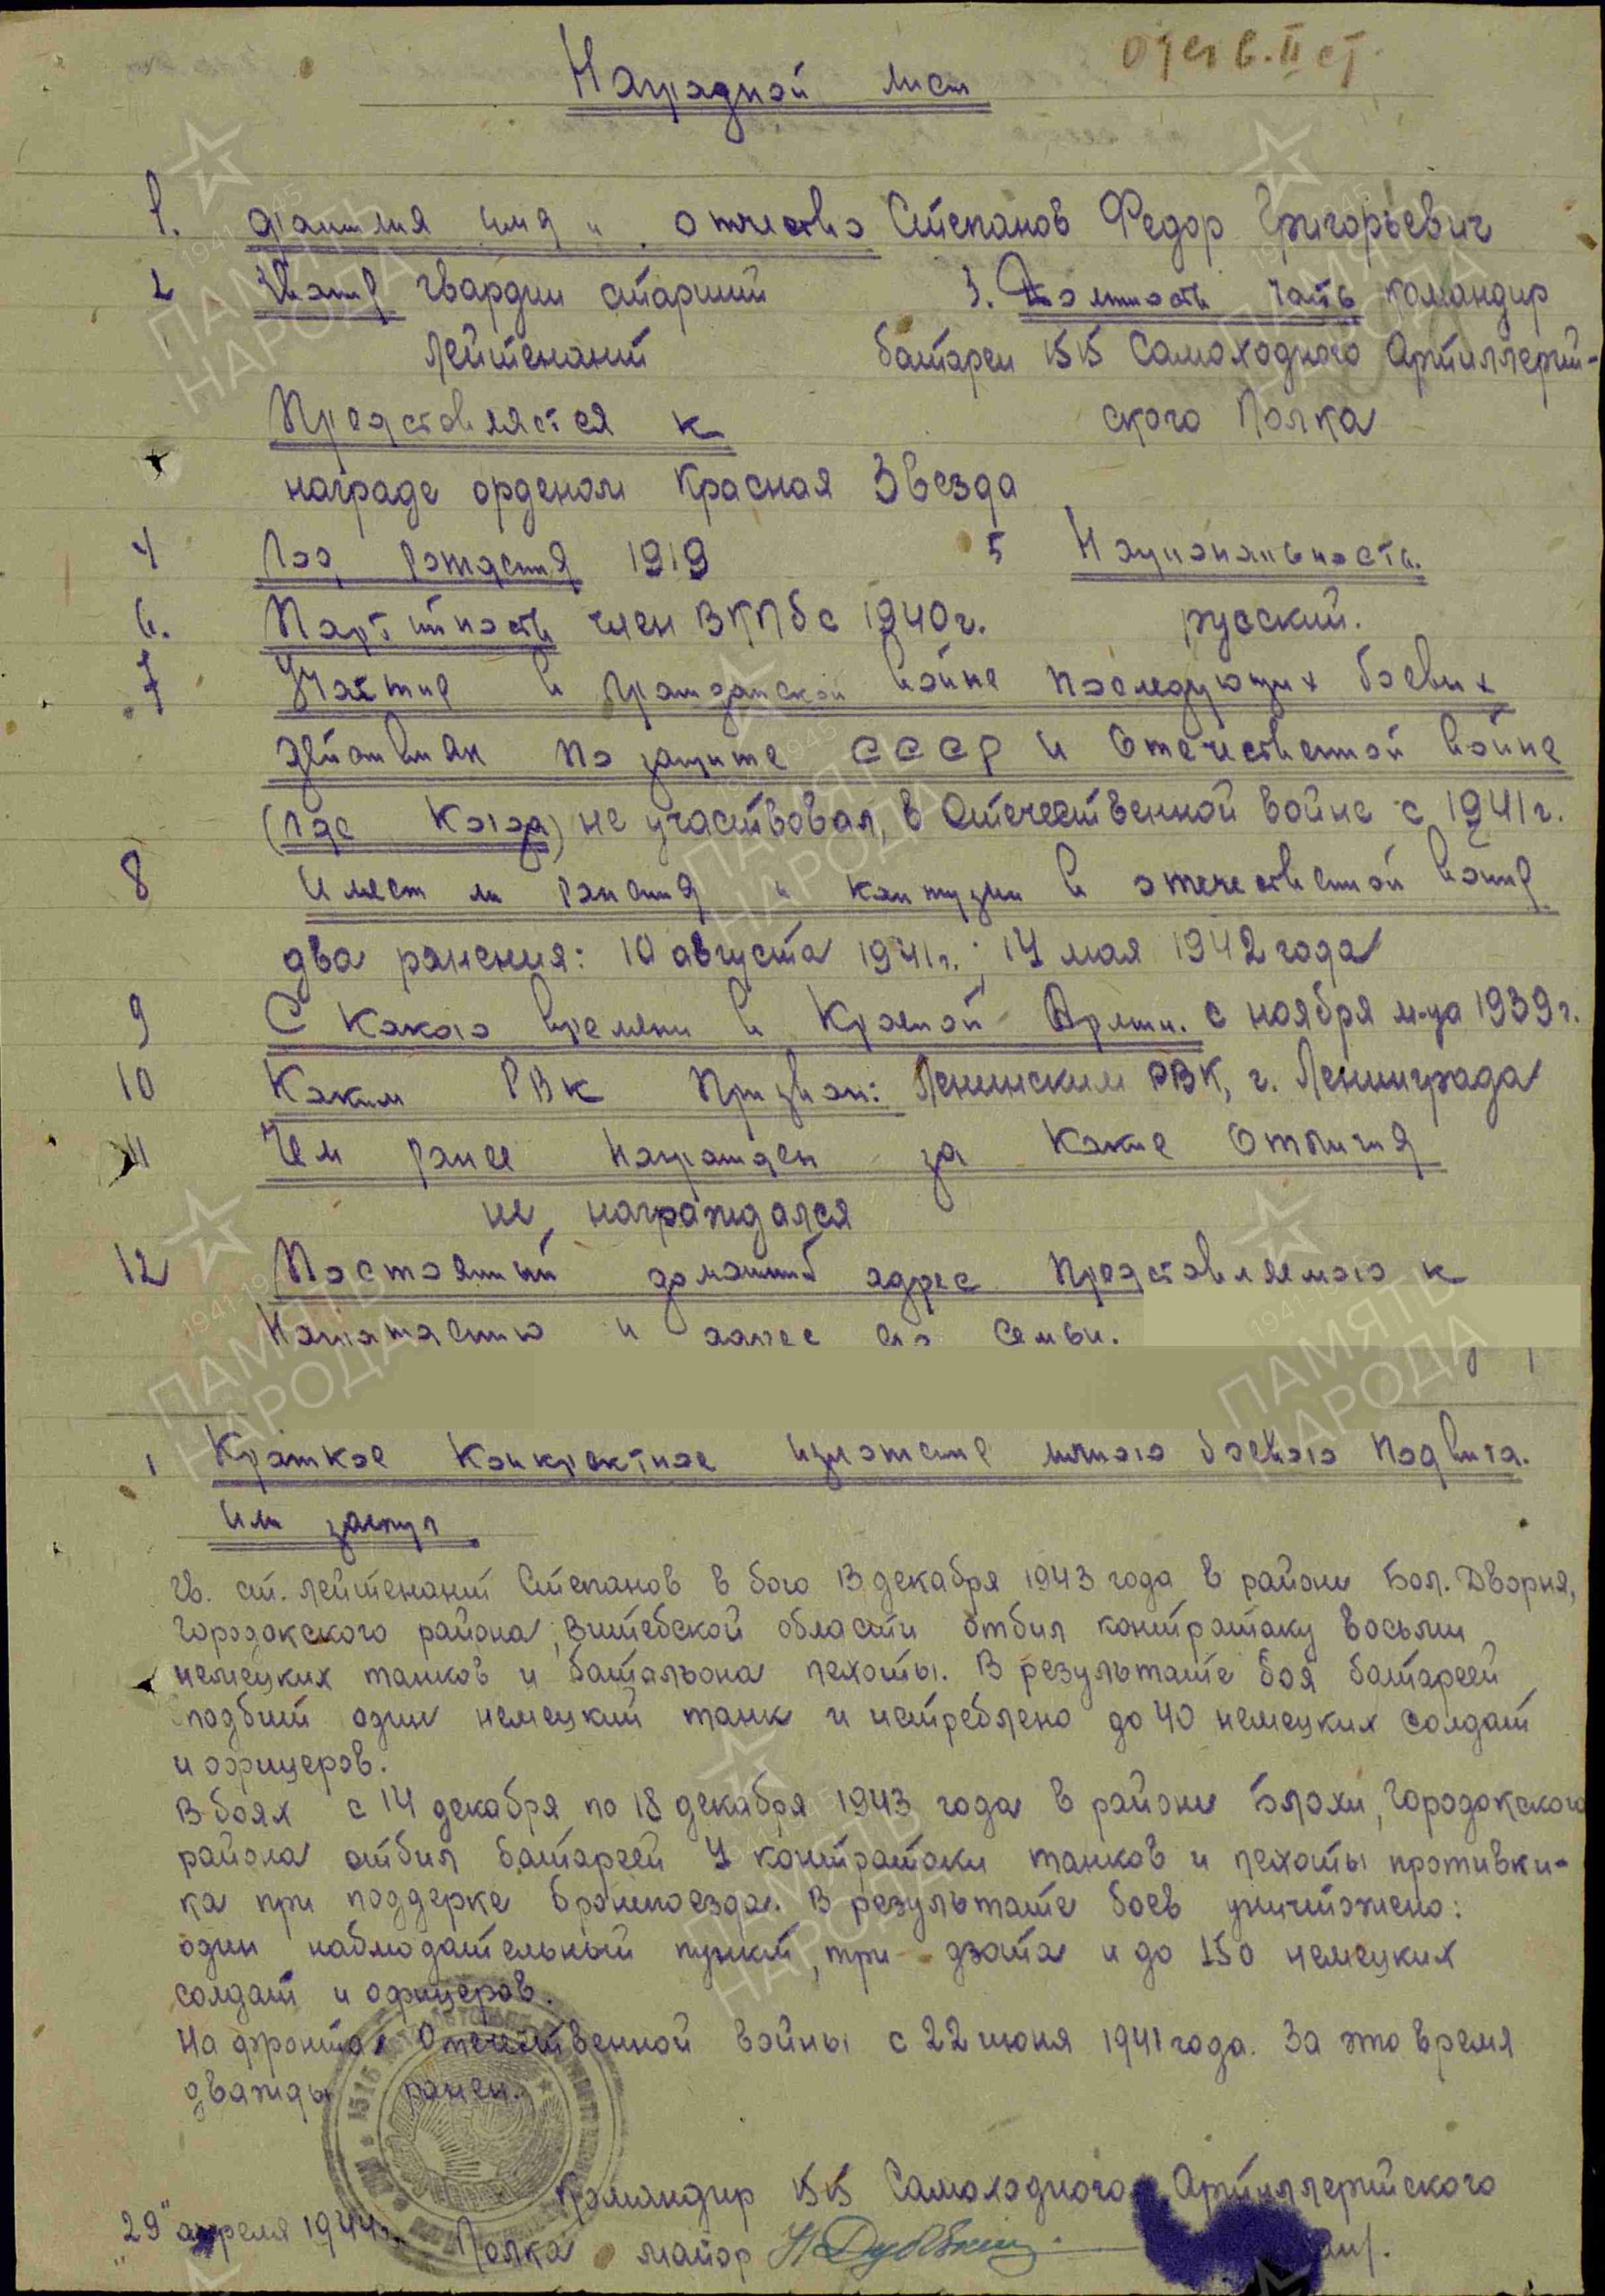 Отеч в. II ст.
Наградной лист
1. Фамилия имя и отчество Степанов Федор Григорьевич
2 Звание гвардии старший 3. Должность часть командир
лейтенант батареи 1515 Самоходного Артиллерий-
Представляется к ского Полка
награде орденом Красная Звезда
4 Год рождения 1919 5 Национальность.
6. Партийность член ВКПб с 1940г. русский.
7 Участие в гражданской войне последующих боевых
действиях по защите СССР и Отечественной войне
(где когда) не участвовал, в Отечественной войне с 1941г.
8 Имеет ли ранения и контузии в отечественной войне
два ранения: 10 августа 1941г.; 14 мая 1942 года
9 С какого времени в Красной Армии. с ноября м-ца 1939г.
10 Каким РВК Призван: Ленинским РВК, г. Ленинграда
11 Чем ранее награжден за какие отличия
не награждался
12 Постоянный домашний адрес представляемого к
награждению и адрес его семьи.
Краткое конкретное изложение личного боевого подвига.
или заслуг
Гв. ст. лейтенант Степанов в бою 13 декабря 1943 года в районе Бол. Дворня,
Городокского района, Витебской области отбил контратаку восьми
немецких танков и батальона пехоты. В результате боя батареей
подбит один немецкий танк и истреблено до 40 немецких солдат
и офицеров.
В боях с 14 декабря по 18 декабря 1943 года в районе Блохи, Городокского
района отбил батареей 4 контратаки танков и пехоты противни-
ка при поддерке бронепоезда. В результате боев уничтожено:
один наблюдательный пункт, три дзота и до 150 немецких
солдат и офицеров.
На фронтах Отечественной войны с 22 июня 1941 года. За это время
дважды ранен.
Командир 1515 Самоходного Артиллерийского
29" апреля 1944г. Полка майор
ПАМЯТЬ НАРОДА
1941 1945